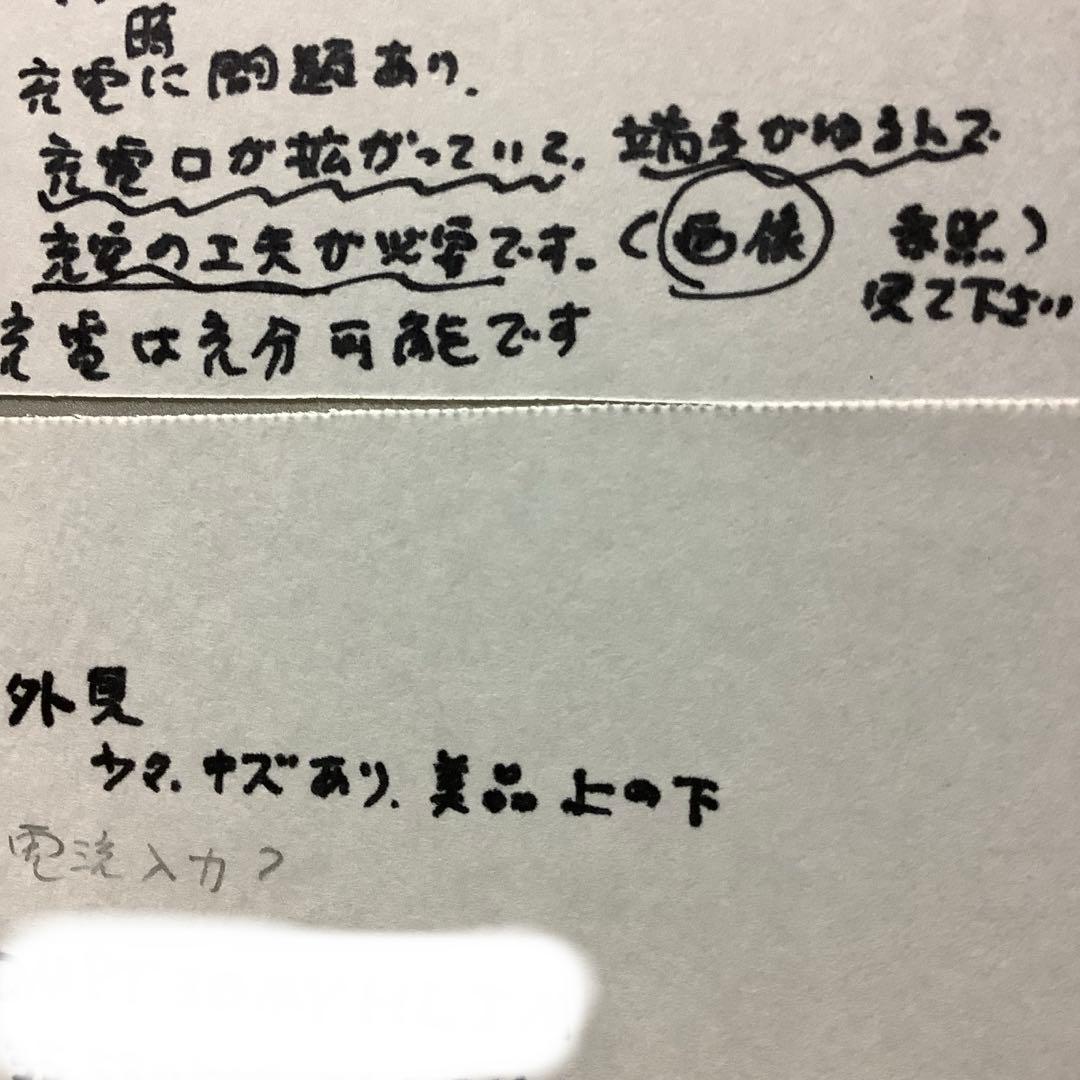 充電時に問題あり.
充電口が拡がっていて、端子がゆるんで
充電の工夫が必要です。(画像 参照)
見て下さい
充電は充分可能です
外見
少々、キズあり、美品 上の下
電流入力?